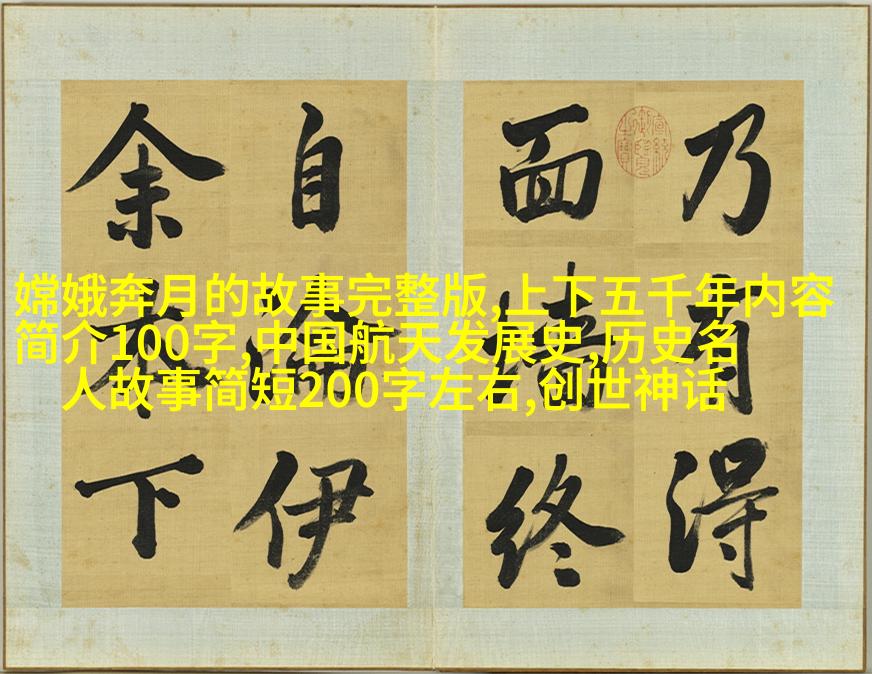 嫦娥奔月的故事完整版,上下五千年内容
简介100字,中国航天发展史,历史名
人故事简短200字左右,创世神话
乃有得
面墻终
自伊
余本下